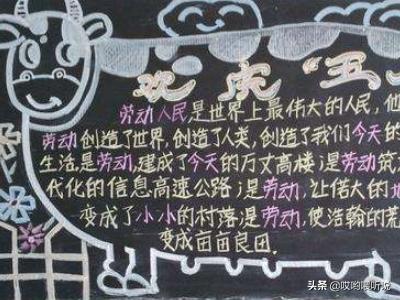 欢庆"五
劳动人民是世界上最伟大的人民,他
劳动创造了世界,创造了人类,创造了我们今天的
生活.是劳动,建成了今天的万丈高楼;是劳动筑
代化的信息高速公路;是劳动,让偌大的地
变成了小小的村落;是劳动,使浩翰的荒
变成亩亩良田.
头条 @哎哟喂听说